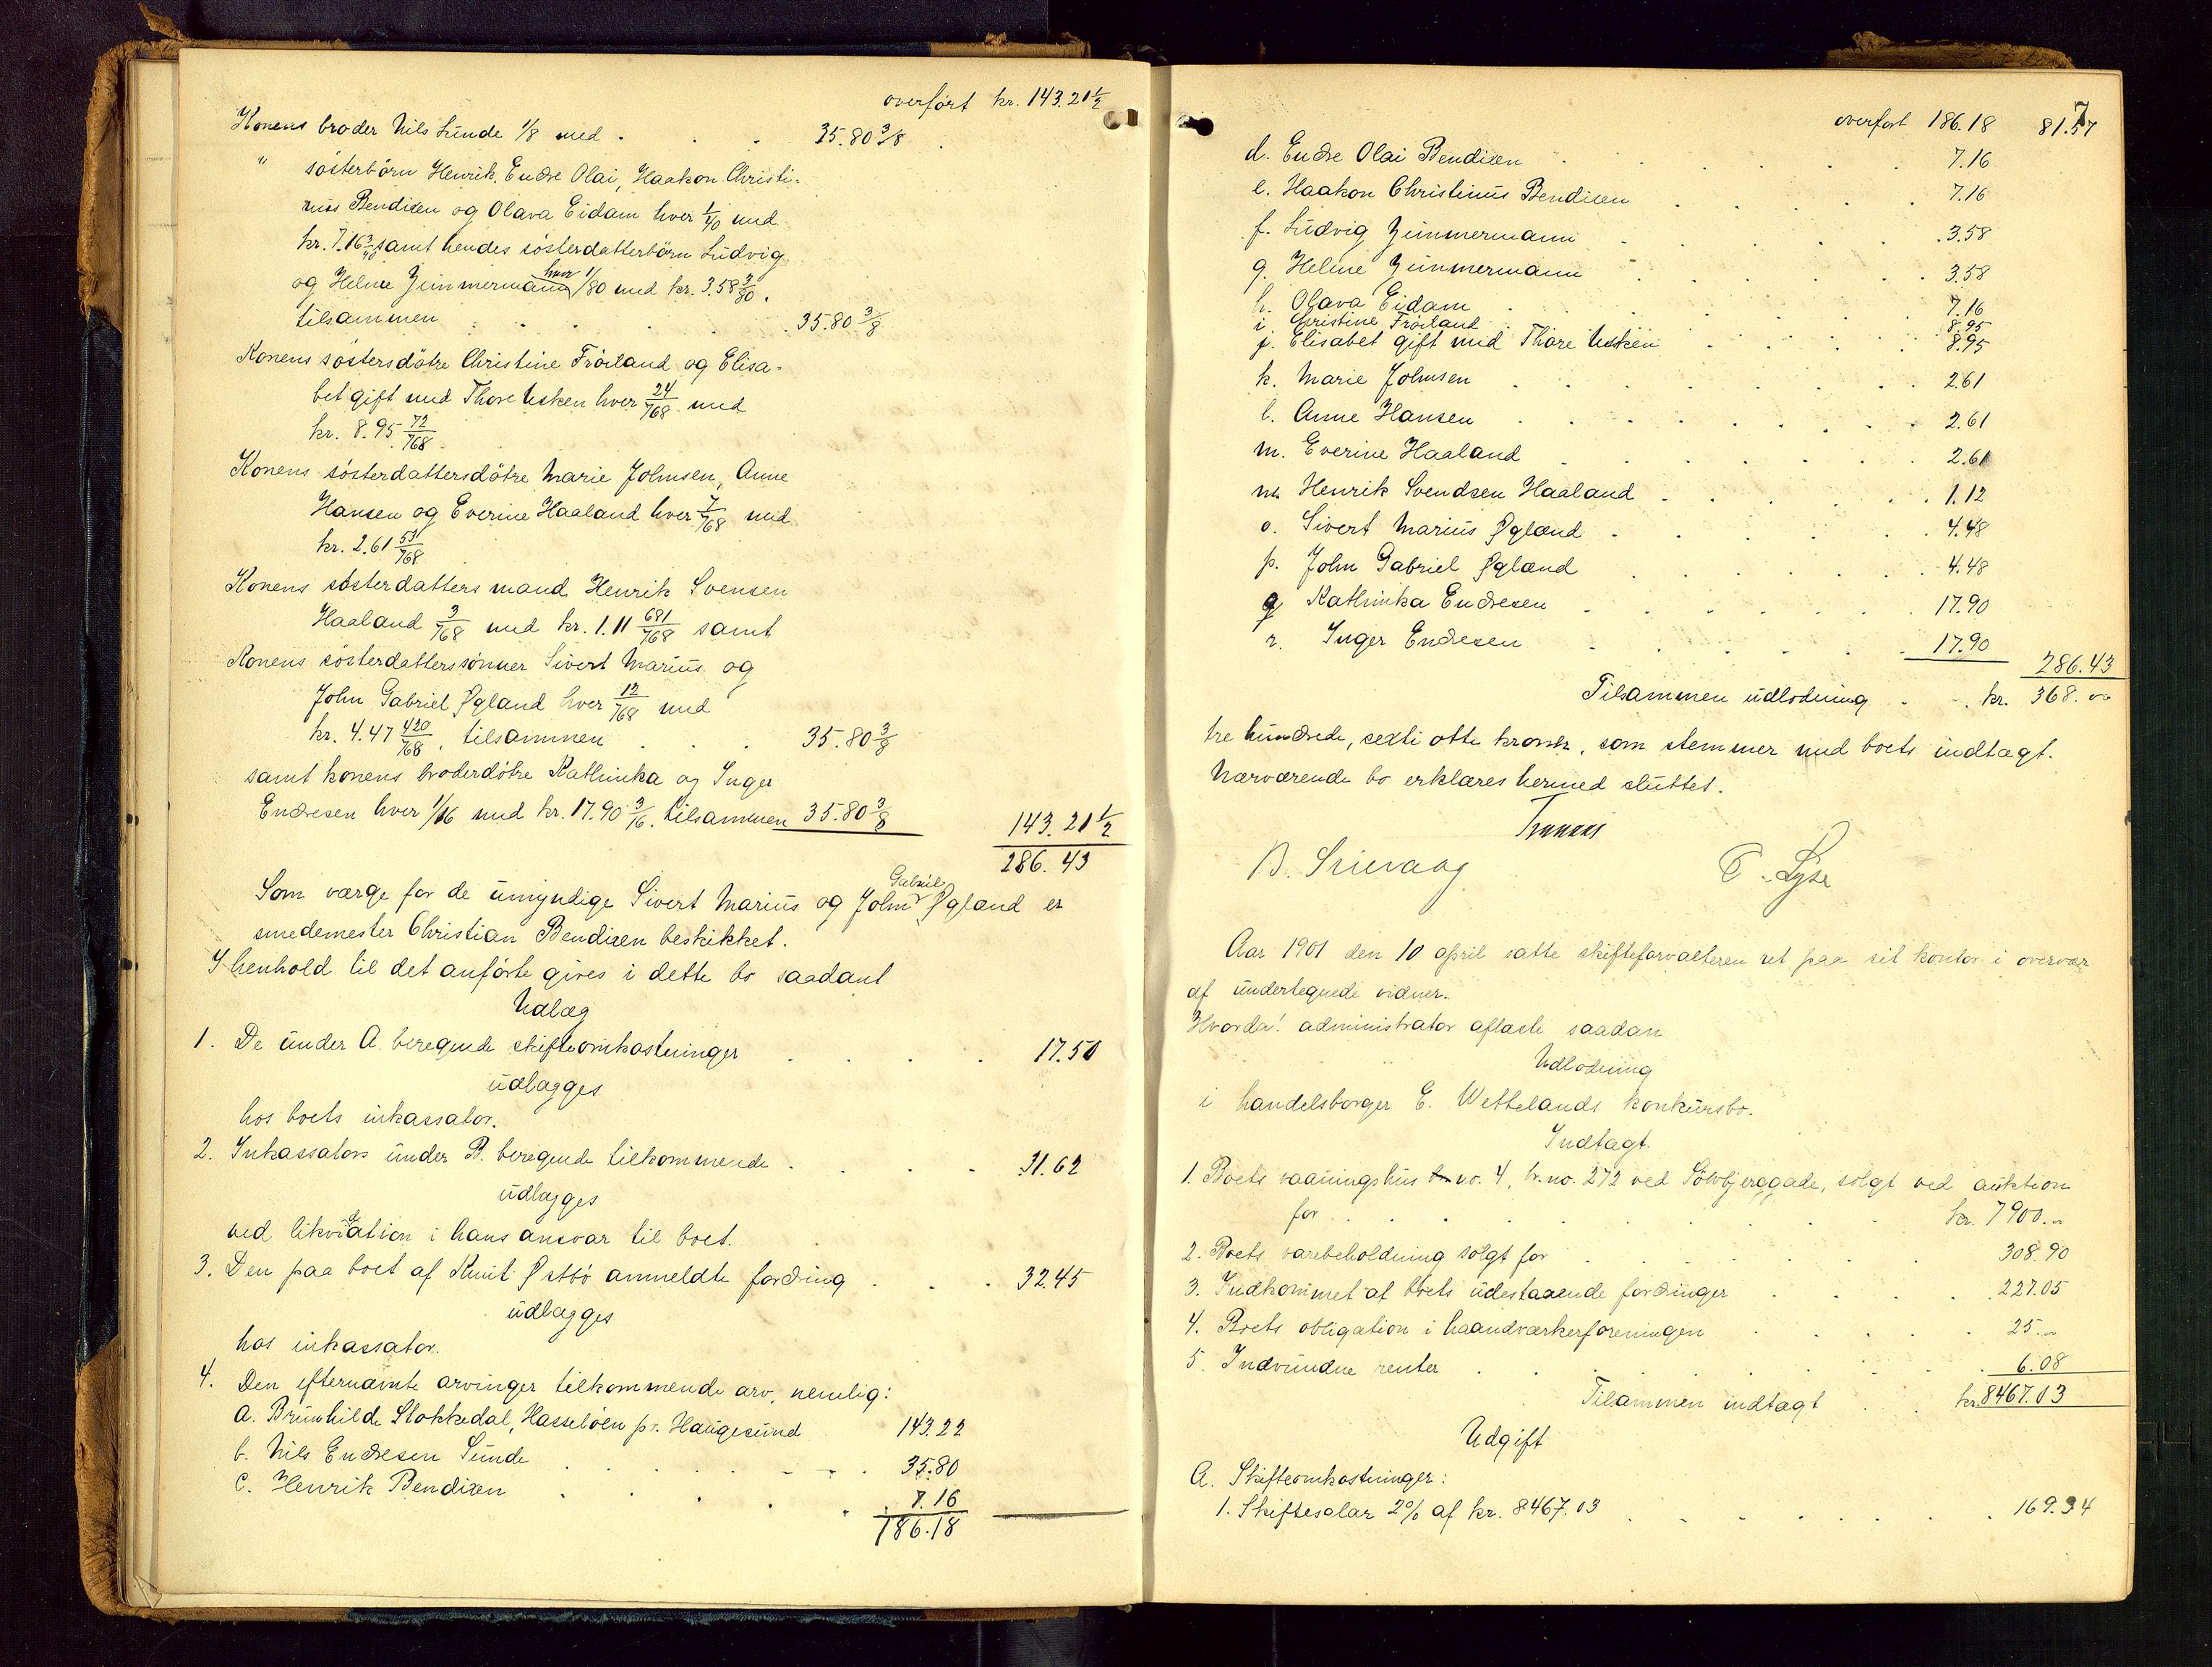 overført kr. 143.21 1/2
Konens broder Nils Sunde 1/8 med . . . 35.80 3/8
" søsterbørn Henrik, Endre Olai, Haakon Christi-
nus Bendixen og Olava Eidam hver 1/40 med
kr. 7.16 3/40 samt hendes søsterdatterbørn Ludvig
og Heline Zimmermann hver 1/80 med kr. 3.58 3/80.
tilsammen . . . . 35.80 3/8
Konens søstersdøtre Christine Frøiland og Elisa-
bet gift med Thore Usken hver 24/768 med
kr. 8.95 72/768
Konens søsterdattersdøtre Marie Johnsen, Anne
Hansen og Everine Haaland hver 7/768 med
kr. 2.61 531/768
Konens søsterdatters mand Henrik Svensen
Haaland 3/768 med kr. 1.11 681/768 samt
Konens søsterdatterssønner Sivert Marius og
John Gabriel Øgland hver 12/768 med
kr. 4.47 420/768, tilsammen . . . 35.80 3/8
samt konens broderdøtre Kathinka og Inger
Endresen hver 1/16 med kr. 17.90 3/16. tilsammen 35.80 3/8 143.21 1/2
286.43
Som værge for de umyndige Sivert Marius og John Gabriel Øgland er
smedemester Christian Bendixen beskikket.
I henhold til det anførte gives i dette bo saadant
Udlæg
1. De under A. beregnede skifteomkostninger . . . . 17.50
udlægges
hos boets inkassator.
2. Inkassators under B. beregnede tilkommende . . . . 31.62
udlægges
ved likvidation i hans ansvar til boet.
3. Den paa boet af Knut Østbø anmeldte fordring . . . 32.45
udlægges
hos inkassator.
4. Den efternævnte arvinger tilkommende arv, nemlig:
a. Brunhilde Stokkedal, Hasseløen pr. Haugesund 143.22
b. Nils Endresen Sunde . . . . 35.80
c. Henrik Bendixen . . . . 7.16
186.18
7
overført 186.18 81.57
d. Endre Olai Bendixen . . . . 7.16
e. Haakon Christinus Bendixen . . . . 7.16
f. Ludvig Zimmermann . . . . 3.58
g. Heline Zimmermann . . . . 3.58
h. Olava Eidam . . . . 7.16
i. Christine Frøiland . . . . 8.95
j. Elisabet gift med Thore Usken . . . . 8.95
k. Marie Johnsen . . . . 2.61
l. Anne Hansen . . . . 2.61
m. Everine Haaland . . . . 2.61
n. Henrik Svendsen Haaland . . . . 1.12
o. Sivert Marius Øgland . . . . 4.48
p. John Gabriel Øgland . . . . 4.48
q Kathinka Endresen . . . . 17.90
r. Inger Endresen . . . . 17.90 286.43
Tilsammen udlodning . . kr. 368.00
tre hundrede, sexti otte kroner, som stemmer med boets indtægt.
Nærværende bo erklæres hermed sluttet.
B. Srievaag T. Lyse
Aar 1901 den 10 april satte skifteforvalteren ret paa sit kontor i overvær
af undertegnede vidner.
Hvorda! administrator aflaste saadan
Udlodning
i handelsborger E. Wettelands konkursbo.
Indtægt.
1. Boets vaaningshus no. 4, br.no. 272 ved Sølvbjerggade, solgt ved auktion
for . . . . kr. 7900.00
2. Boets varebeholdning solgt for . . . . 308.90
3. Indkommet af boets udestaaende fordringer . . . . 227.05
4. Boets obligation i haandværkerforeningen . . . . 25.00
5. Indvundne renter . . . . 6.08
Tilsammen indtægt . . kr. 8467.03
Udgift
A. Skifteomkostninger:
1. Skiftesalær 2% af kr. 8467.03 . . . . 169.34